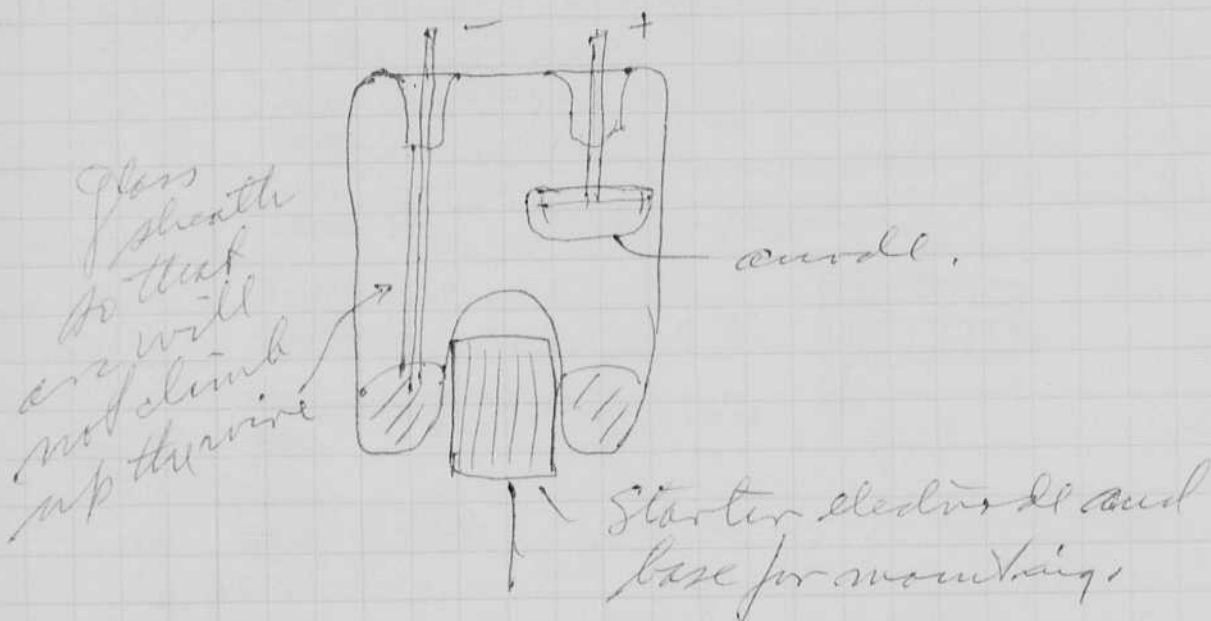 - +
glass
sheath
so that
arc will
not climb
up the wire
anode.
Starter electrode and
base for mounting.